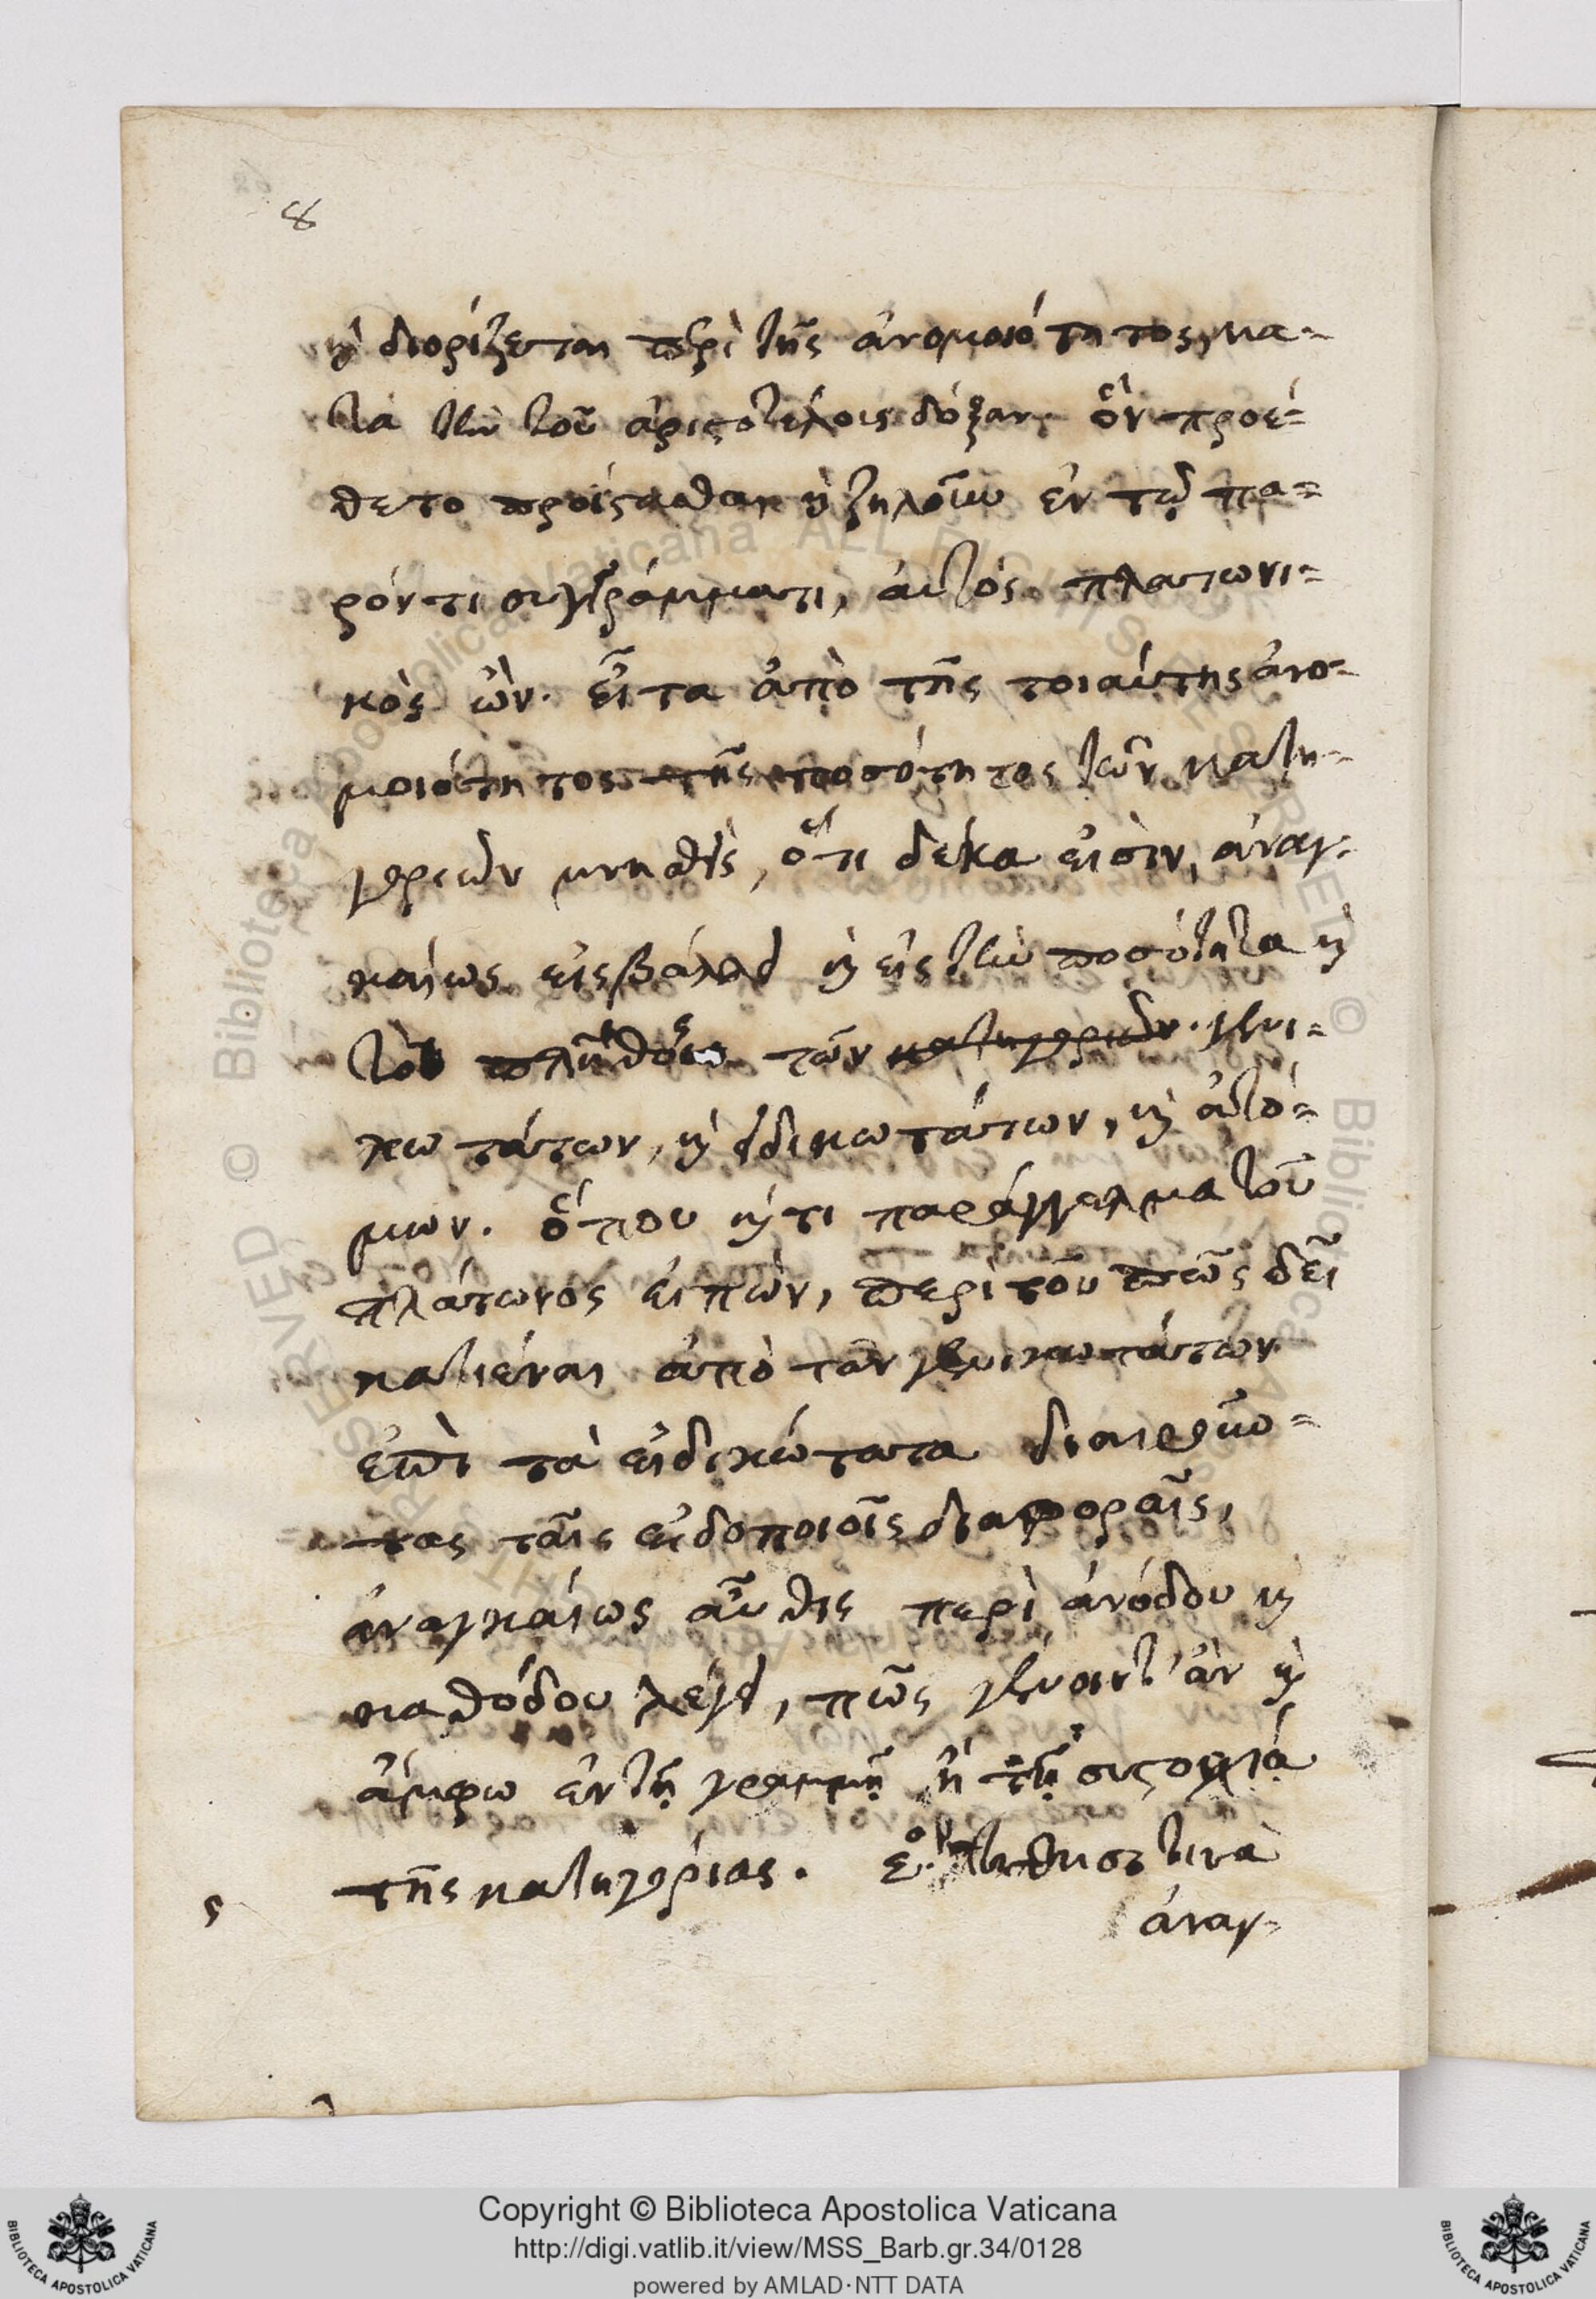 8
καὶ διορίζεται περὶ τῆς ἀνομοιότητος, κα-
τὰ τὴν τοῦ ἀριστοτέλους δόξαν· ὃν προέ-
θετο προΐστασθαι καὶ ζηλοῦν ἐν τῷ πα-
ρόντι συγγράμματι, αὐτὸς πλατωνι-
κὸς ὢν. εἶτα ἀπὸ τῆς τοιαύτης ἀνο-
μοιότητος τῆς ποσότητος τῶν κατη-
γοριῶν μνησθεὶς, ὅτι δέκα εἰσὶν, ἀναγ-
καίως εἰσβάλλει καὶ εἰς τὴν ποσότητα καὶ
τὸ πλῆθος τῶν κατηγοριῶν. γενι-
κωτάτων, καὶ εἰδικωτάτων, καὶ ἀτό-
μων. ὅπου καί τι παράγγελμα τοῦ
πλάτωνος εἰπὼν, περὶ τοῦ πῶς δεῖ
κατιέναι ἀπὸ τῶν γενικωτάτων
ἐπὶ τὰ εἰδικώτατα διαιροῦν-
τας ταῖς εἰδοποιοῖς διαφοραῖς,
ἀναγκαίως αὖθις περὶ ἀνόδου καὶ
καθόδου λέγει, πῶς γένοιντ' ἂν καὶ
ἄμφω ἐν τῇ γραμμῇ ἢ τῇ συστοιχίᾳ
τῆς κατηγορίας. τινὰ
ς
ἀναγ-
Copyright © Biblioteca Apostolica Vaticana
http://digi.vatlib.it/view/MSS_Barb.gr.34/0128
powered by AMLAD·NTT DATA
BIBLIOTECA APOSTOLICA VATICANA
BIBLIOTECA APOSTOLICA VATICANA